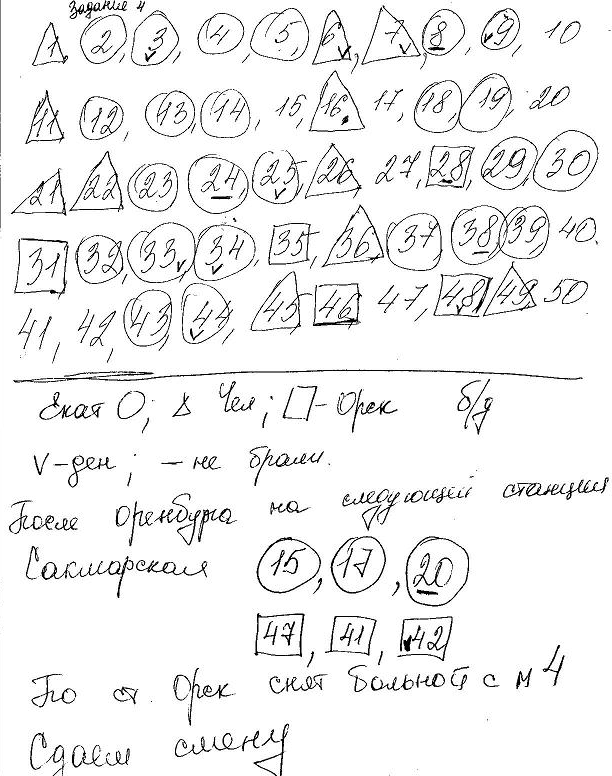 Задание 4
1, 2, 3, 4, 5, 6, 7, 8, 9, 10
11, 12, 13, 14, 15, 16, 17, 18, 19, 20
21, 22, 23, 24, 25, 26, 27, 28, 29, 30
31, 32, 33, 34, 35, 36, 37, 38, 39, 40.
41, 42, 43, 44, 45, 46, 47, 48, 49, 50
Екат О; Δ Чел; □ - Орск б/д
V - ден; — не брали.
После Оренбурга на следующей станции
Сакмарская 15, 17, 20
47, 41, 42
По ст. Орск снят больной с м 4
Сдаем смену